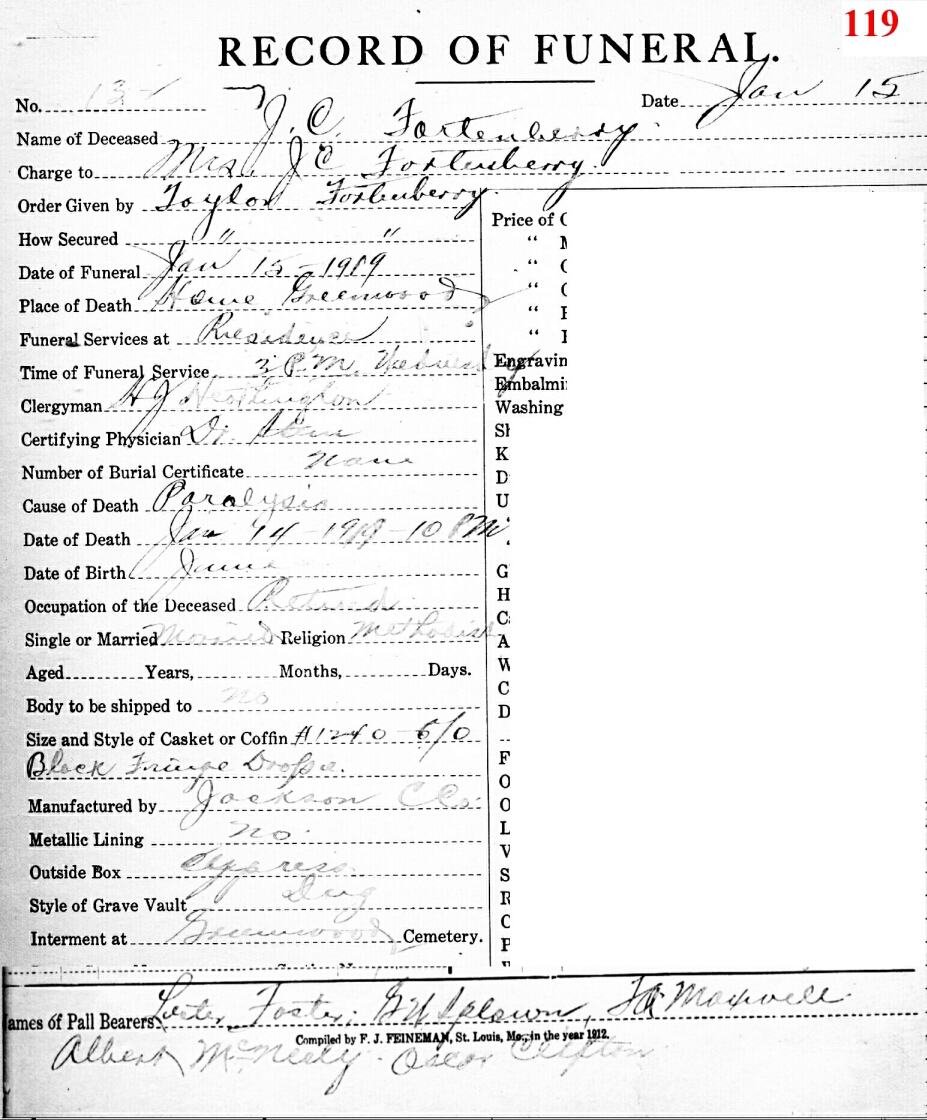 119
RECORD OF FUNERAL.
No. 13 Date Jan 15
Name of Deceased J. C. Fortenberry
Charge to Mrs. J C Fortenberry.
Order Given by Taylor Fortenberry.
Price of C
How Secured " "
" M
Date of Funeral Jan 15 - 1919
" C
Place of Death Home Greenwood
" C
" F
Funeral Services at Residence
" I
Time of Funeral Service 3 P.M. Wednesday
Engravin
Embalmi
Clergyman H J
Washing
Certifying Physician Dr.
SI
K
Number of Burial Certificate None
D
Cause of Death Paralysis
U
Date of Death Jan 14 - 1919 - 10 PM
Date of Birth June
G
Occupation of the Deceased Retired
H
C
Single or Married Married Religion Methodist
A
Aged Years, Months, Days.
W
C
Body to be shipped to no
D
Size and Style of Casket or Coffin #1240 6/0
Black Fringe
F
O
Manufactured by Jackson C Co.
O
Metallic Lining no.
L
V
Outside Box Cypress
S
Style of Grave Vault Dug
R
C
Interment at Greenwood Cemetery.
P
ames of Pall Bearers Luster Foster, G H Splawn, Maxwell
Compiled by F. J. FEINEMAN, St. Louis, Mo., in the year 1912.
Albert McNeely Oscar Clifton